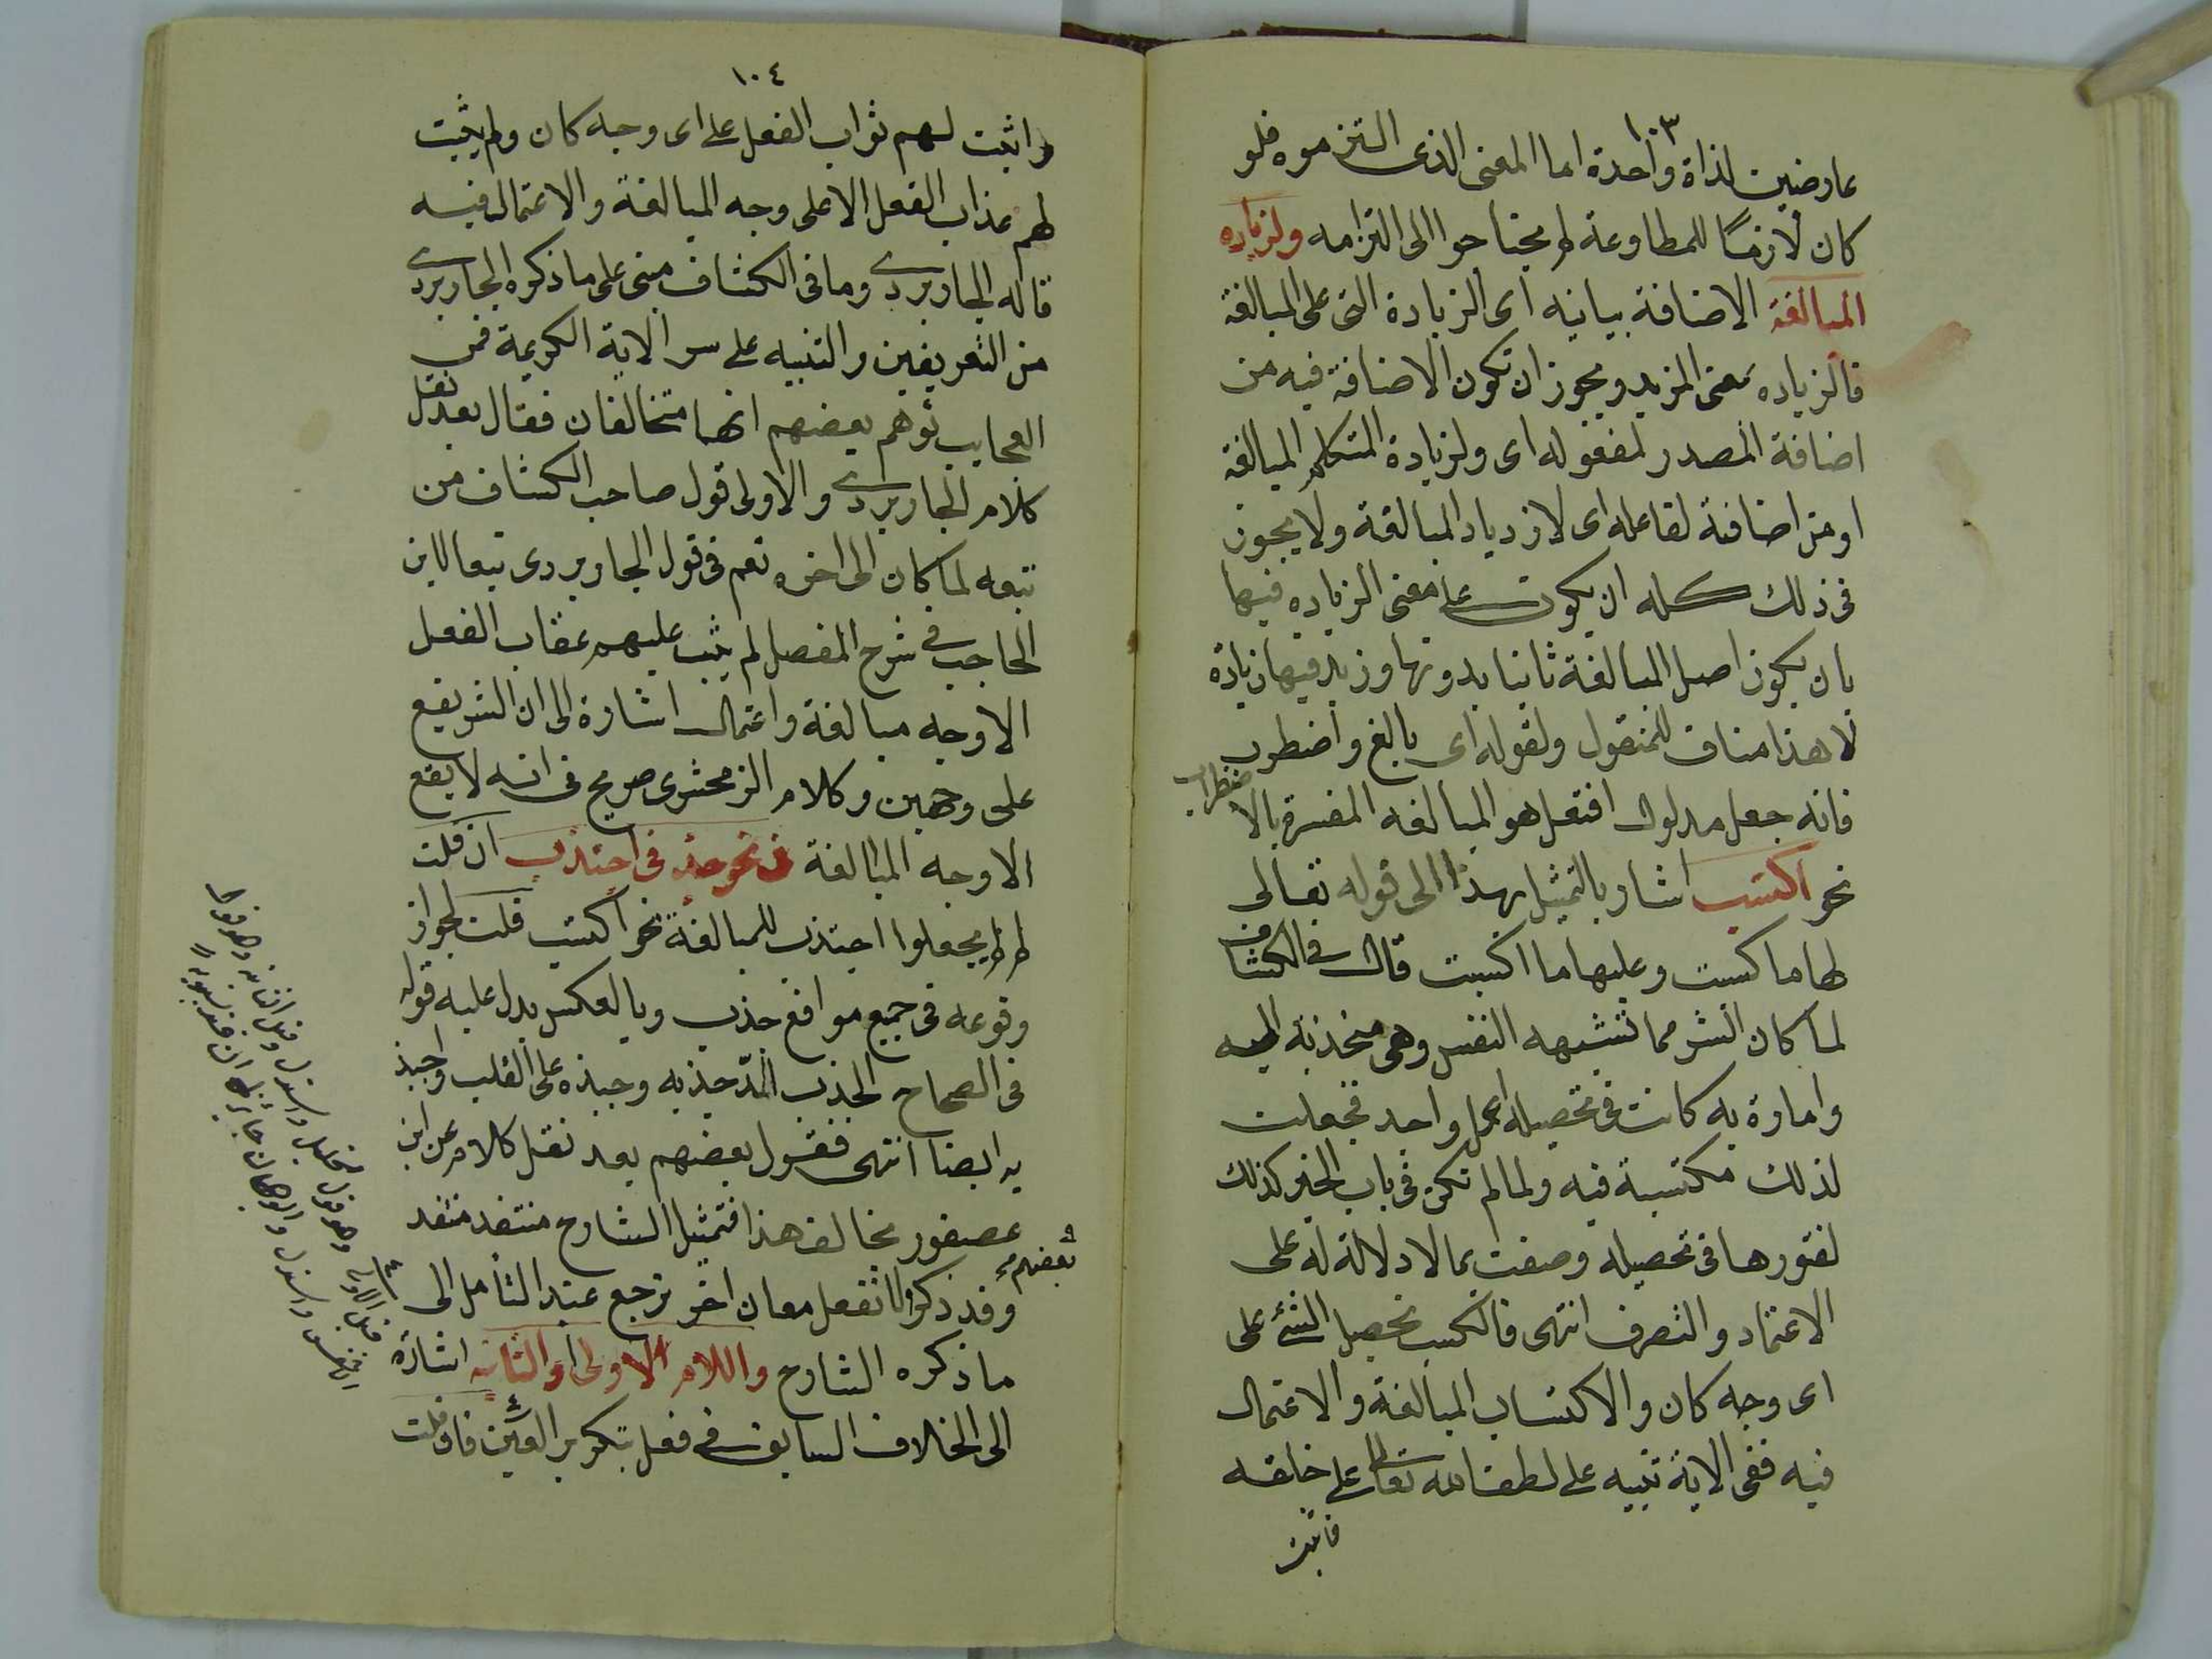 ١٠٣
عارضين لذاة واحدة اما المعنى الذى التزموه فلو
كان لازمًا للمطاوعة لم يحتاجوا الى التزامه ولزياده
المبالغة الاضافة بيانيه اى الزيادة التى على المبالغة
فالزياده بمعنى المزيد ويجوز ان تكون الاضافة فيه من
اضافة المصدر لمفعوله اى ولزيادة المتكلم المبالغة
او من اضافة لفاعله اى لازدياد المبالغة ولا يجوز
فى ذلك كله ان يكون على معنى الزياده فيها
بان يكون اصل المبالغة ثانيا بدونها وزيد فيها زيادة
لا هذا مناف للمنقول ولقوله اى بالغ واضطرب
فانه جعل مدلول افتعل هو المبالغه المفسرة بالا
ضطراب
نحو اكتسب اشار بالتمثيل بهذا الى قوله تعالى
لها ما كسبت وعليها ما اكتسبت قال فى الكشاف
لما كان الشر مما تشتهيه النفس وهى منجذبة اليه
وامارة به كانت فى تحصيله اعمل واجد فجعلت
لذلك مكتسبة فيه ولما لم تكن فى باب الخير كذلك
لفتورها فى تحصيله وصفت بما لا دلالة له على
الاعتماد والتصرف انتهى فالكسب تحصيل الشئ على
اى وجه كان والاكتساب المبالغة والاعتمال
فيه ففى الاية تنبيه على لطف الله تعالى على خلقه
فاثبت
١٠٤
واثبت لهم ثواب الفعل على اى وجه كان ولم يثبت
لهم عذاب الفعل الا على وجه المبالغة والاعتمال فيه
قاله الجاربردى وما فى الكشاف مبنى على ما ذكره الجاربردى
من التعريفين والتنبيه على سر الاية الكريمة فمن
العجايب توهم بعضهم انهما متخالفان فقال بعد نقل
كلام الجاربردى والاولى قول صاحب الكشاف من
تبعه لما كان الى اخره نعم فى قول الجاربردى تبعا لابن
الحاجب فى شرح المفصل لم يثبت عليهم عقاب الفعل
الا وجه مبالغة واعتمال اشارة الى ان الشر يقع
على وجهين وكلام الزمخشرى صريح فى انه لا يقع
الا وجه المبالغة نحو جذب فى اجتذب ان قلت
لم لم يجعلوا اجتذب للمبالغة نحو اكتسب قلت لجواز
وقوعه فى جميع مواقع جذب وبالعكس يدل عليه قوله
فى الصحاح الجذب المدّ جذبه وجبذه على القلب واجتذ
به ايضا انتهى فقول بعضهم بعد نقل كلام عن ابن
عصفور يخالف هذا فتمثيل الشارح منتقد منتقد
وقد ذكر بعضهم لا نفعل معان اخر ترجع عند التأمل الى
ما ذكره الشارح واللام الاولى او الثانيه اشارة
الى الخلاف السابق فى فعل بتكرير العين فان قلت